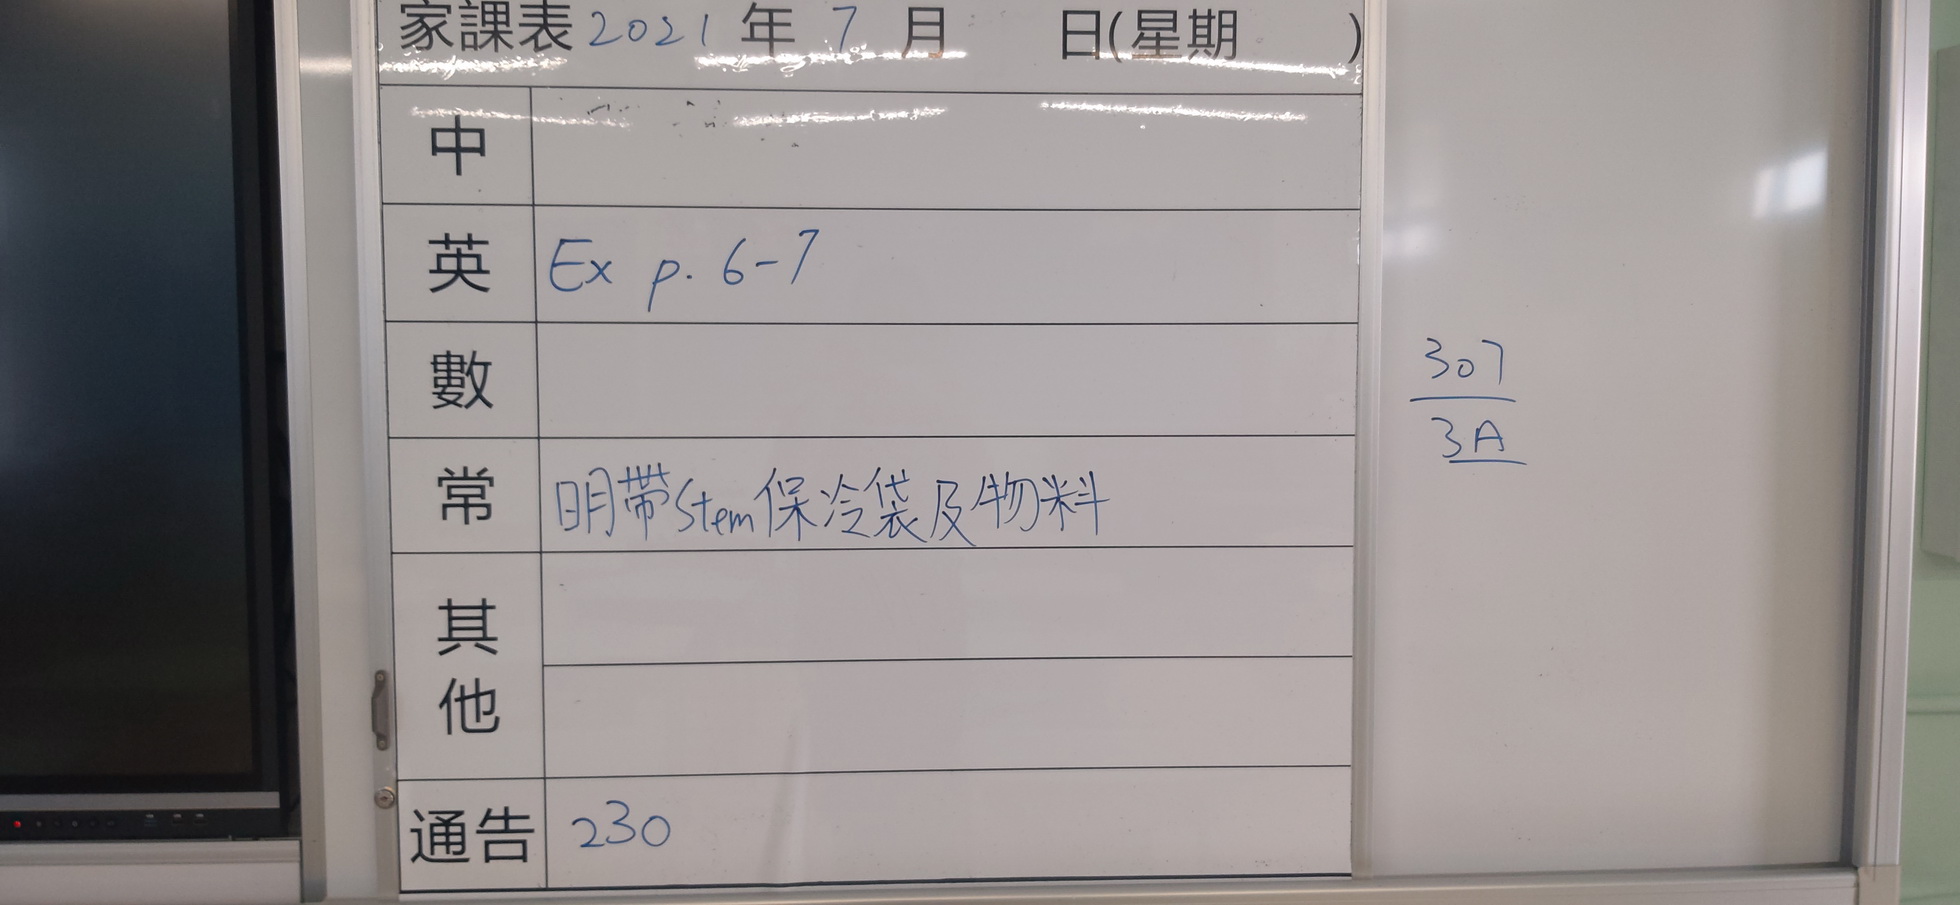 家課表 2021 年 7 月 日(星期 )
中
英 Ex p. 6-7
數
常 明帶Stem保冷袋及物料
其他
通告 230
307
3A